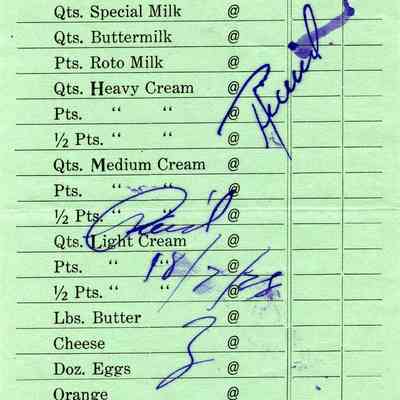 Qts. Special Milk @
Qts. Buttermilk @
Pts. Roto Milk @
Qts. Heavy Cream @
Pts. “ “ @
½ Pts. “ “ @
Qts. Medium Cream @
Pts. “ “ @
½ Pts. “ “ @
Paid
Qts. Light Cream @
Pts. “ “ @
18/7/38
½ Pts. “ “ @
Lbs. Butter @
Cheese @
Doz. Eggs @
Orange @